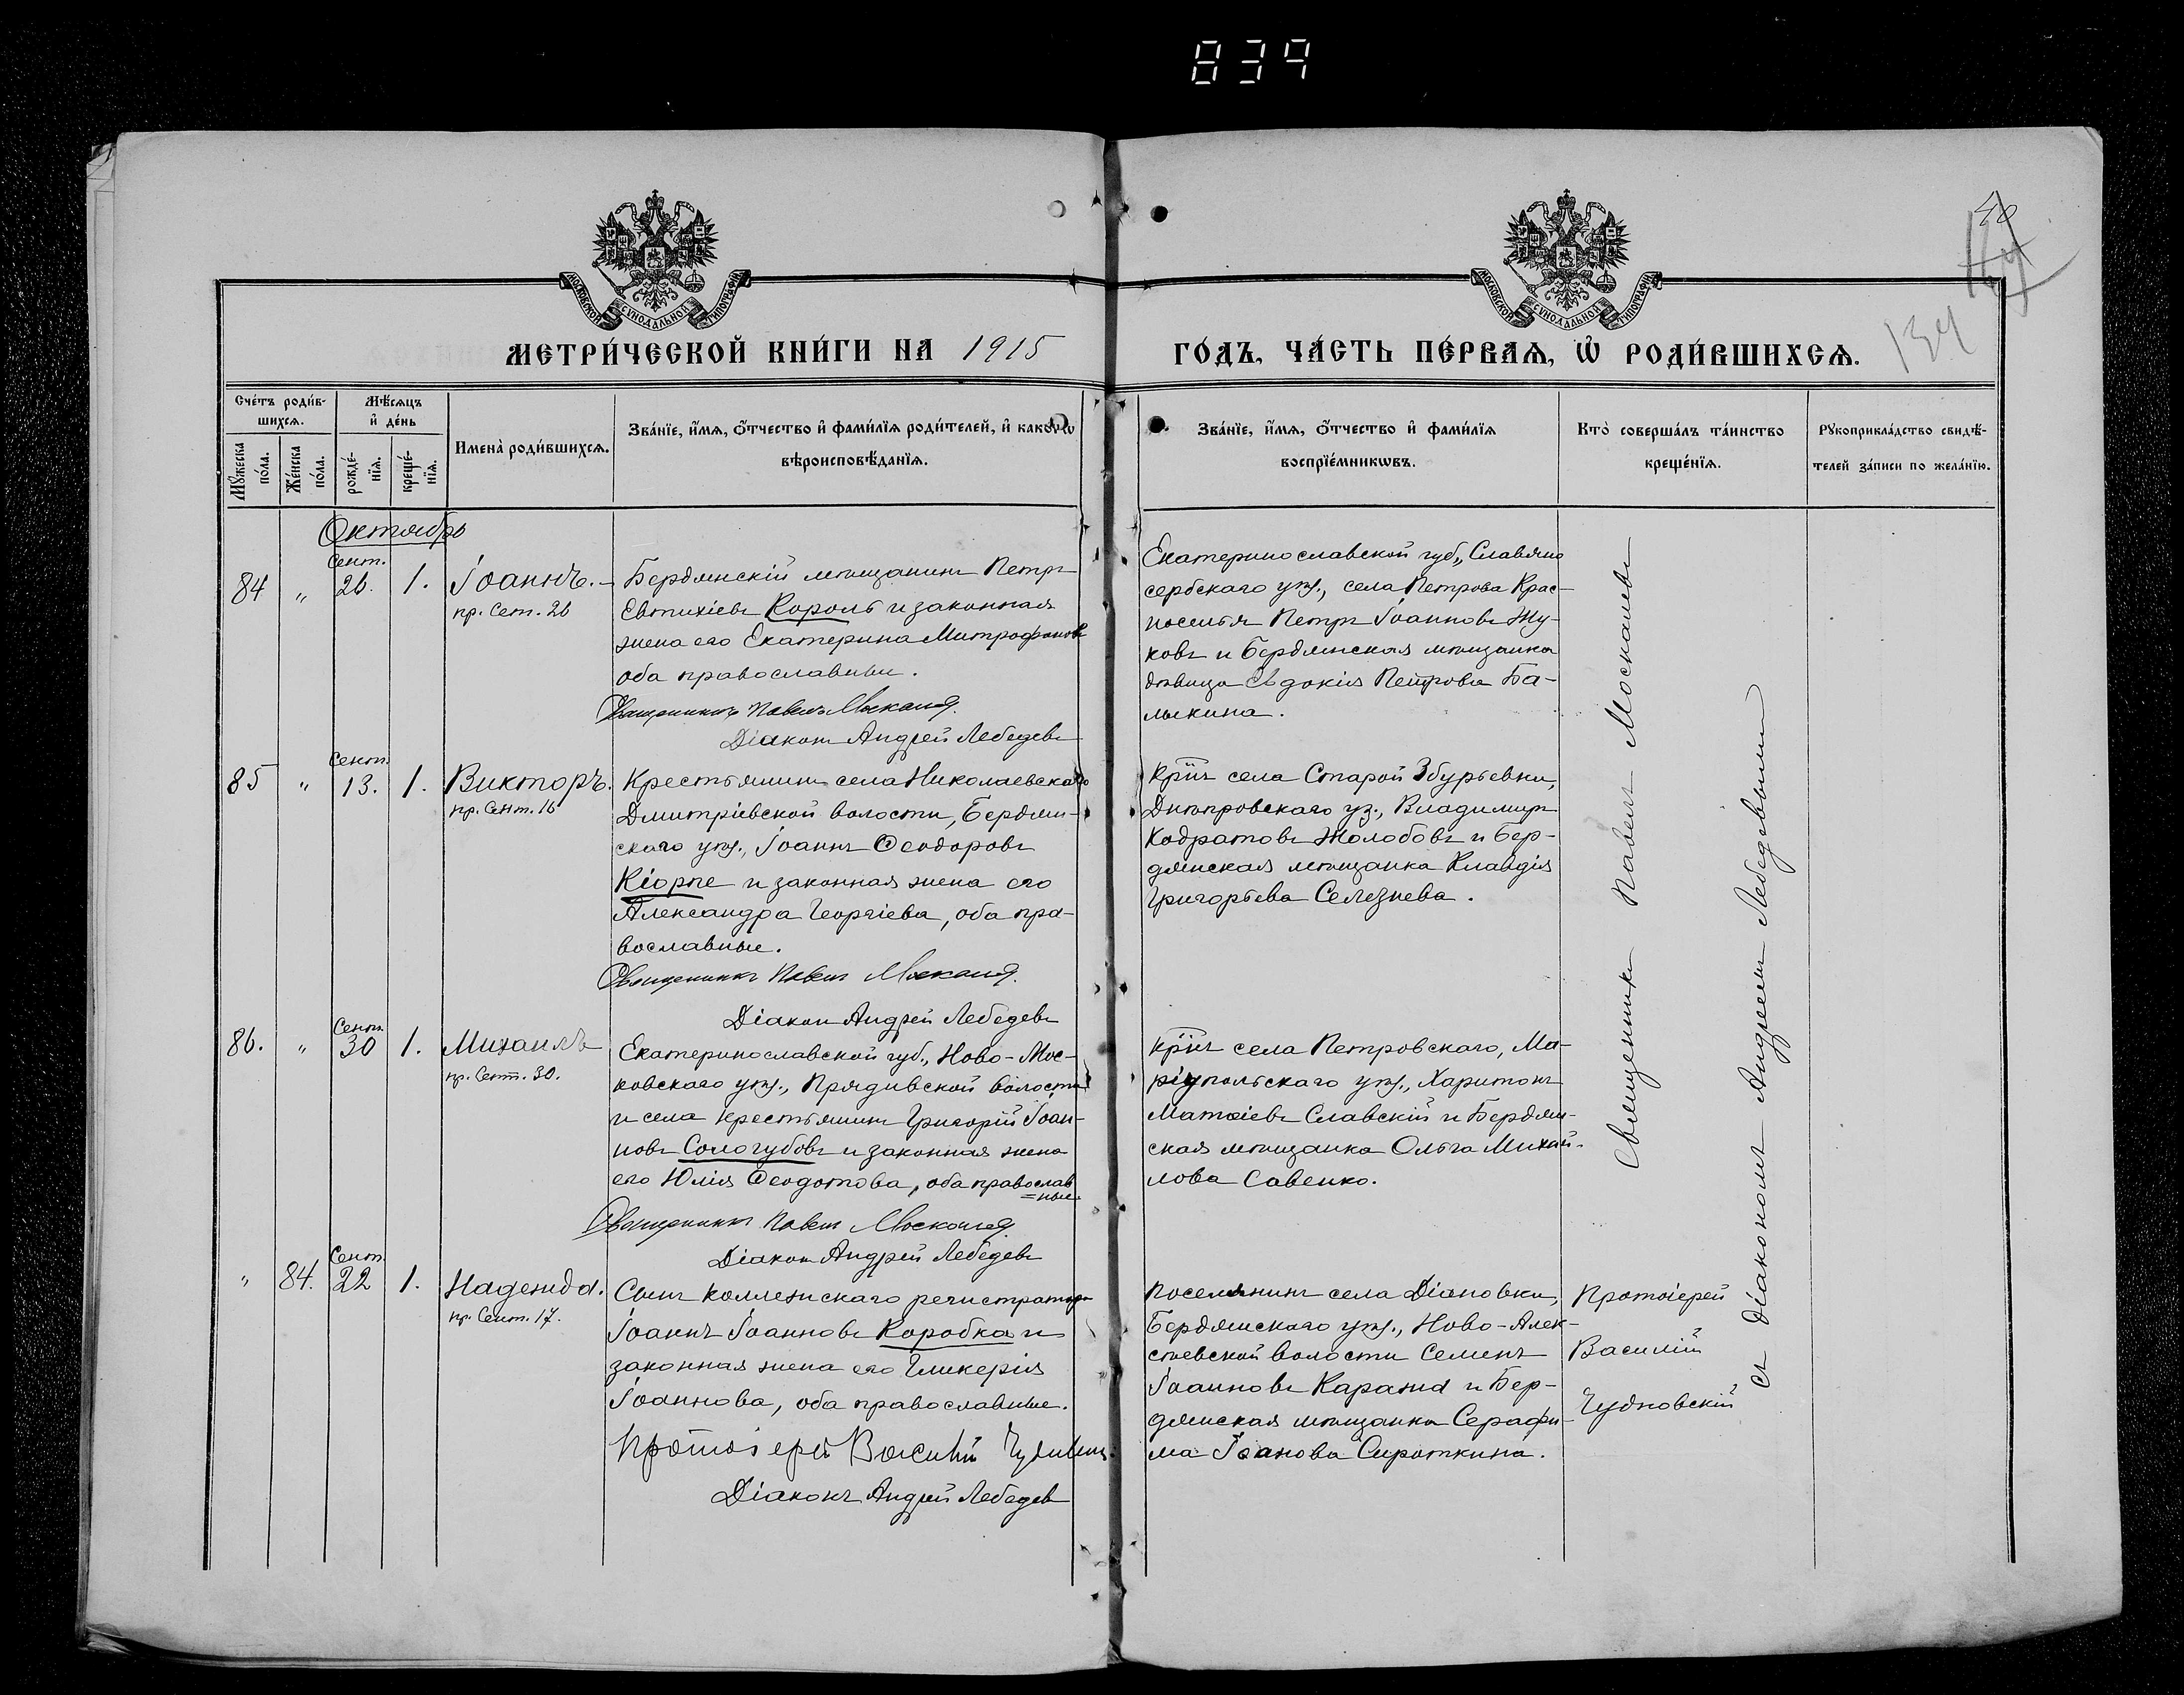 839
40
134
МОСКОВСКОЙ СѴНОДАЛЬНОЙ ТИПОГРАФІИ
МОСКОВСКОЙ СѴНОДАЛЬНОЙ ТИПОГРАФІИ
МЕТРИ́ЧЕСКОЙ КНИ́ГИ НА 1915
ГО́ДЪ, ЧА́СТЬ ПЕ́РВАѦ, Ѡ҆ РОДИ́ВШИХСѦ.
Сче́тъ роди́в-
шихсѧ.
Мѣ́сѧцъ
и҆ де́нь
Мꙋжеска
по́ла.
Же́нска
по́ла.
рожде́-
нїѧ.
креще́-
нїѧ.
Имена̀ роди́вшихсѧ.
Зва́нїе, и҆́мѧ, ѻ҆́тчество и҆ фами́лїѧ роди́телей, и҆ како́гѡ
вѣроисповѣ́данїѧ.
Зва́нїе, и҆́мѧ, ѻ҆́тчество и҆ фами́лїѧ
воспрїе́мникѡвъ.
Кто̀ соверша́лъ та́инство
креще́нїѧ.
Рꙋкоприкла́дство свидѣ́-
телей за́писи по жела́нїю.
Октябрь
84 " Сент. 26. 1. Іоаннъ.
пр. Сент. 26
Бердянскій мѣщанинъ Петръ
Евтихіевъ Король и законная
жена его Екатерина Митрофанова
оба православные.
Священникъ Павелъ Москалевъ
Діаконъ Андрей Лебедевъ
Екатеринославской губ., Славяно
сербскаго уѣз., села Петрова Крас-
носелья Петръ Іоанновъ Жу-
ковъ и Бердянская мѣщанка
дѣвица Евдокія Петрова Ба-
лыкина.
85 " Сент. 13. 1. Викторъ.
пр. Сент. 16
Крестьянинъ села Николаевскаго
Дмитріевской волости, Бердян-
скаго уѣз., Іоаннъ Ѳеодоровъ
Кіорпе и законная жена его
Александра Георгіева, оба пра-
вославные.
Священникъ Павелъ Москалевъ
Діаконъ Андрей Лебедевъ
Кр͠нъ села Старой Збурьевки,
Днѣпровскаго уз., Владимиръ
Кодратовъ Жолобовъ и Бер-
дянская мѣщанка Клавдія
Григорьева Селезнева.
86. " Сент. 30 1. Михаилъ
пр. Сент. 30.
Екатеринославской губ., Ново-Мос-
ковскаго уѣз., Прядивской волости
и села крестьянинъ Григорій Іоан-
новъ Сологубовъ и законная жена
его Юлія Ѳеодотова, оба православ
=ные.
Священникъ Павелъ Москалевъ
Діаконъ Андрей Лебедевъ
Кр͠нъ села Петровскаго, Ма-
ріупольскаго уѣз., Харитонъ
Матѳіевъ Славскій и Бердян-
ская мѣщанка Ольга Михай-
лова Савенко.
Священникъ Павелъ Москалевъ
съ діакономъ Андреемъ Лебедевымъ
" 84. Сент. 22 1. Надежда.
пр. Сент. 17.
Сынъ коллежскаго регистратора
Іоаннъ Іоанновъ Коробка и
законная жена его Гликерія
Іоаннова, оба православные.
Протоіерей Василій Чудновскій
Діаконъ Андрей Лебедевъ
Поселянинъ села Діановки,
Бердянскаго уѣз., Ново-Алек-
сѣевской волости Семенъ
Іоанновъ Каража и Бер-
дянская мѣщанка Серафи-
ма Іоанова Сироткина.
Протоіерей
Василій
Чудновскій